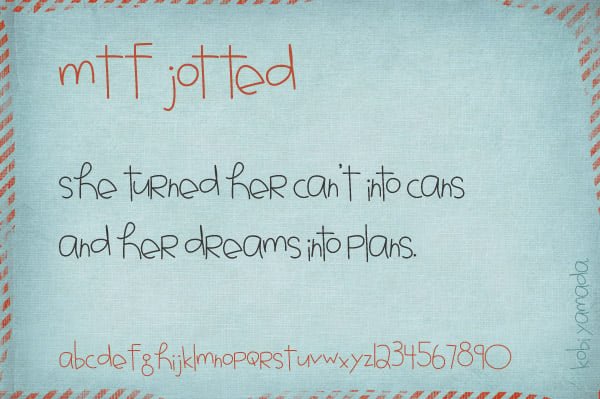 mtf jotted
she turned her can't into cans
and her dreams into plans.
abcdefghijklmnopqrstuvwxyz1234567890
kobi yamada